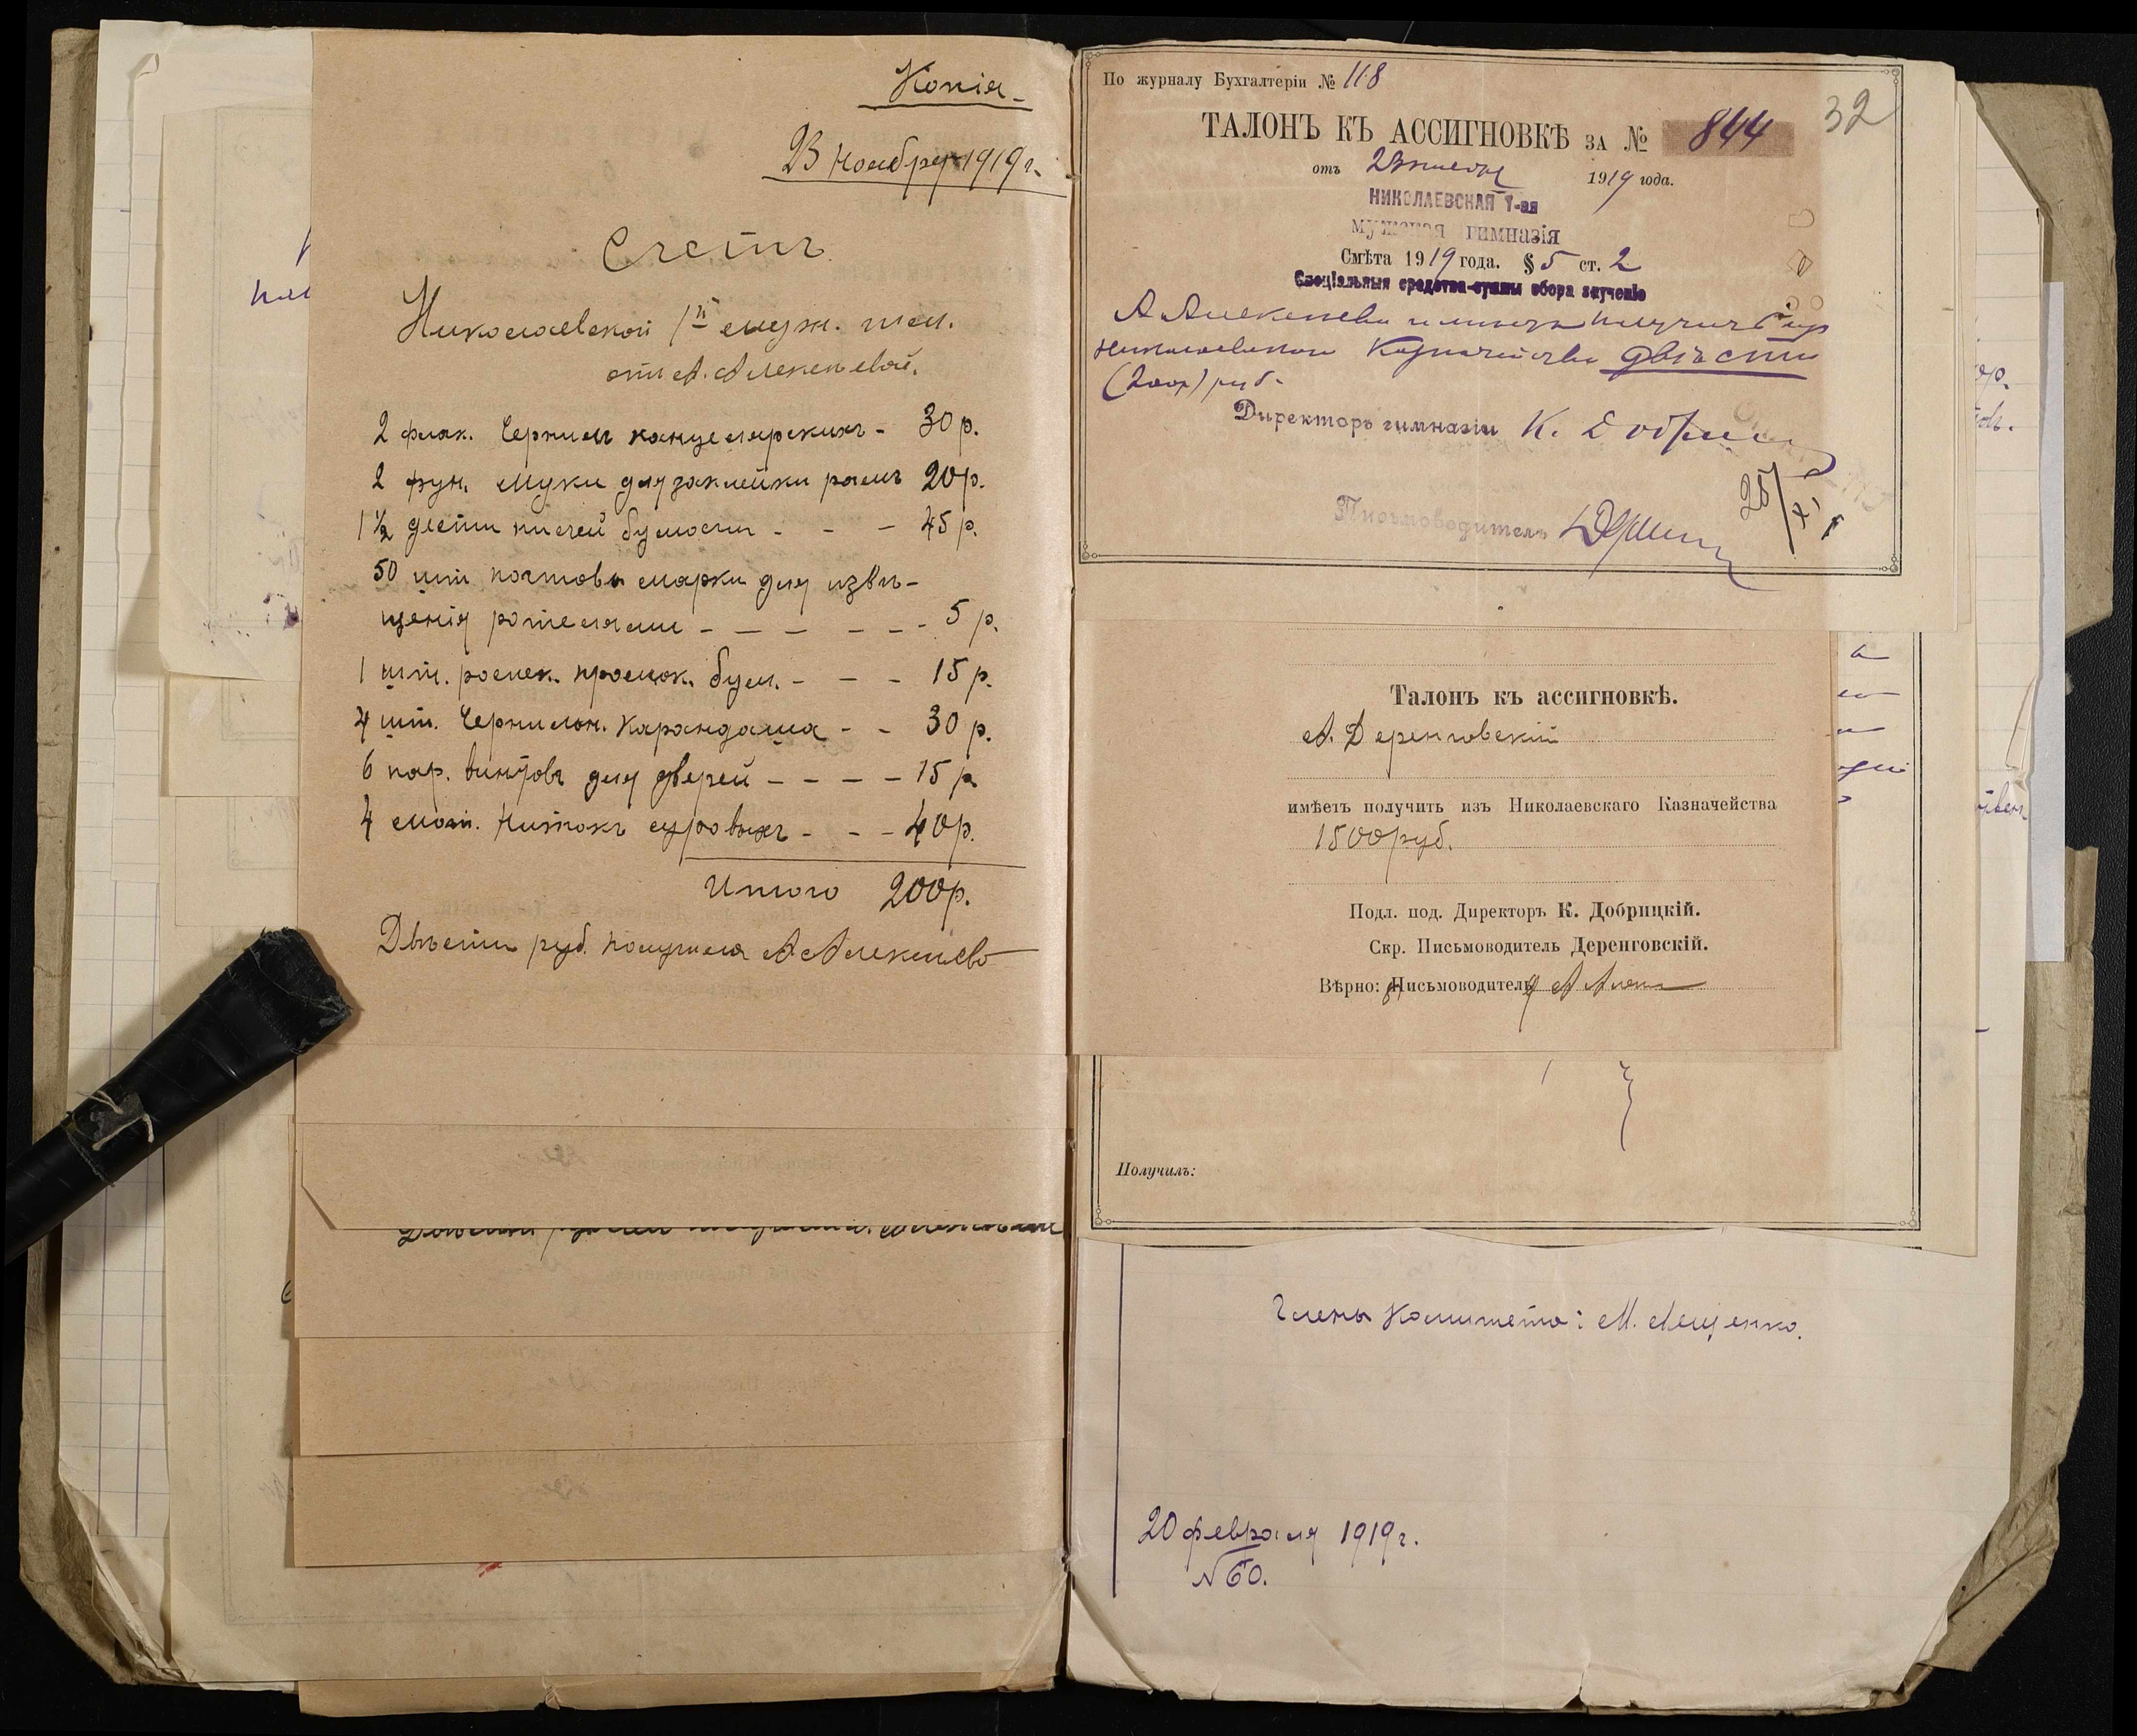 Копія
23 ноября 1919 г.
Счетъ
Николаевской 1й муж. гим.
отъ А. Алексѣевой.
2 флак. чернилъ канцелярскихъ - 30 р.
2 фун. муки для заклейки рамъ 20 р.
1 ½ дести писчей бумаги - - - 45 р.
50 шт почтовы марки для извѣ-
щенія родителями - - - - - - 5 р.
1 шт. промок. бум. - - - 15 р.
4 шт. чернилон. карандаша - - 30 р.
6 пар. винтовъ для дверей - - - - 15 р
4 мот. нитокъ суровыхъ - - - 40 р.
Итого 200 р.
Двѣсти руб. получила А Алексѣева
По журналу Бухгалтеріи № 118
32
ТАЛОНЪ КЪ АССИГНОВКѢ ЗА № 844
отъ 23 ноября 1919 года.
НИКОЛАЕВСКАЯ 1-ая
мужская гимназія
Смѣта 1919 года. § 5 ст. 2
Спеціальныя средства-суммы сбора за ученіе
А Алексѣева имѣетъ получить изъ
Николаевскаго Казначейства двѣсти
(200 р) руб.
Директоръ гимназіи К. Добрицкій
Письмоводитель
25/XI
Талонъ къ ассигновкѣ.
А. Деренговскій
имѣетъ получить изъ Николаевскаго Казначейства
1500 руб.
Подл. под. Директоръ К. Добрицкій.
Скр. Письмоводитель Деренговскій.
Вѣрно: Письмоводитель
Получилъ:
Члены Комитета: М. Лещенко.
20 февраля 1919 г.
№ 60.